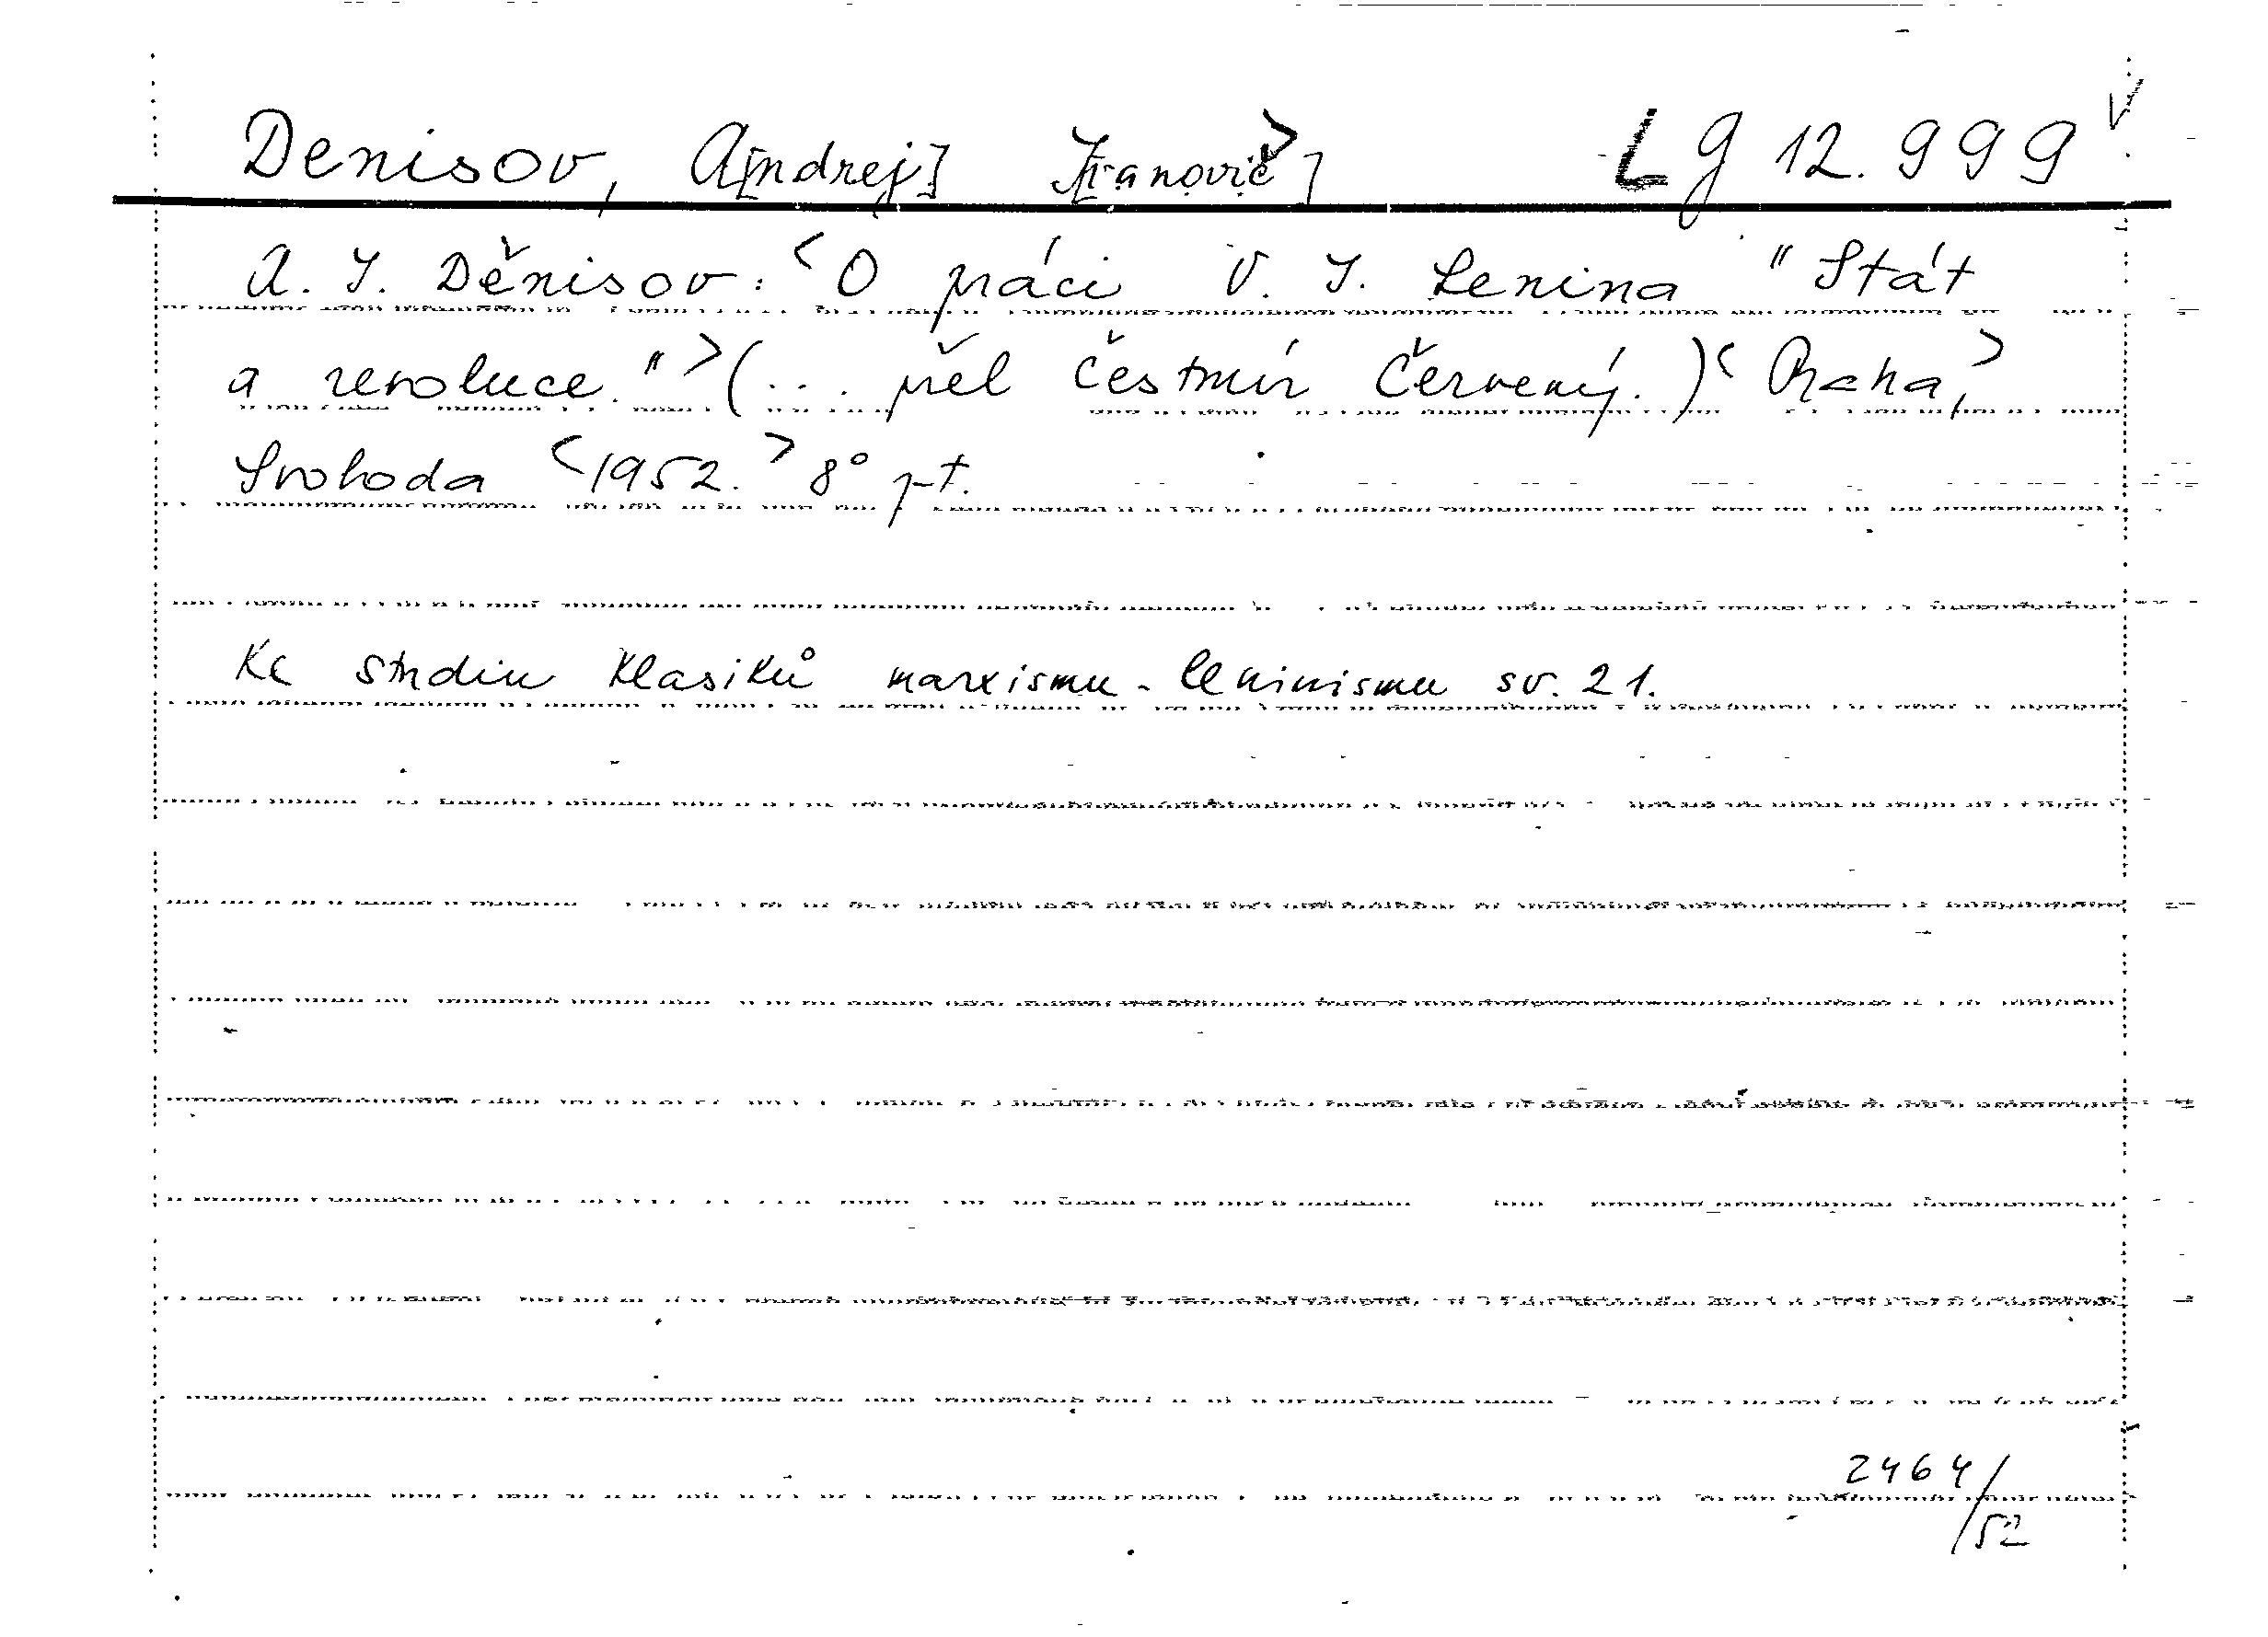 Denisov, A[ndrej] I[vanovič] Lg 12.999
A. I. Děnisov: <O práci V. I. Lenina "Stát
a revoluce." > (... přel Čestmír Červený.) <Praha,>
Svoboda <1952.> 8° p-t.
Ke studiu klasiků marxismu-leninismu sv. 21.
2464/
52